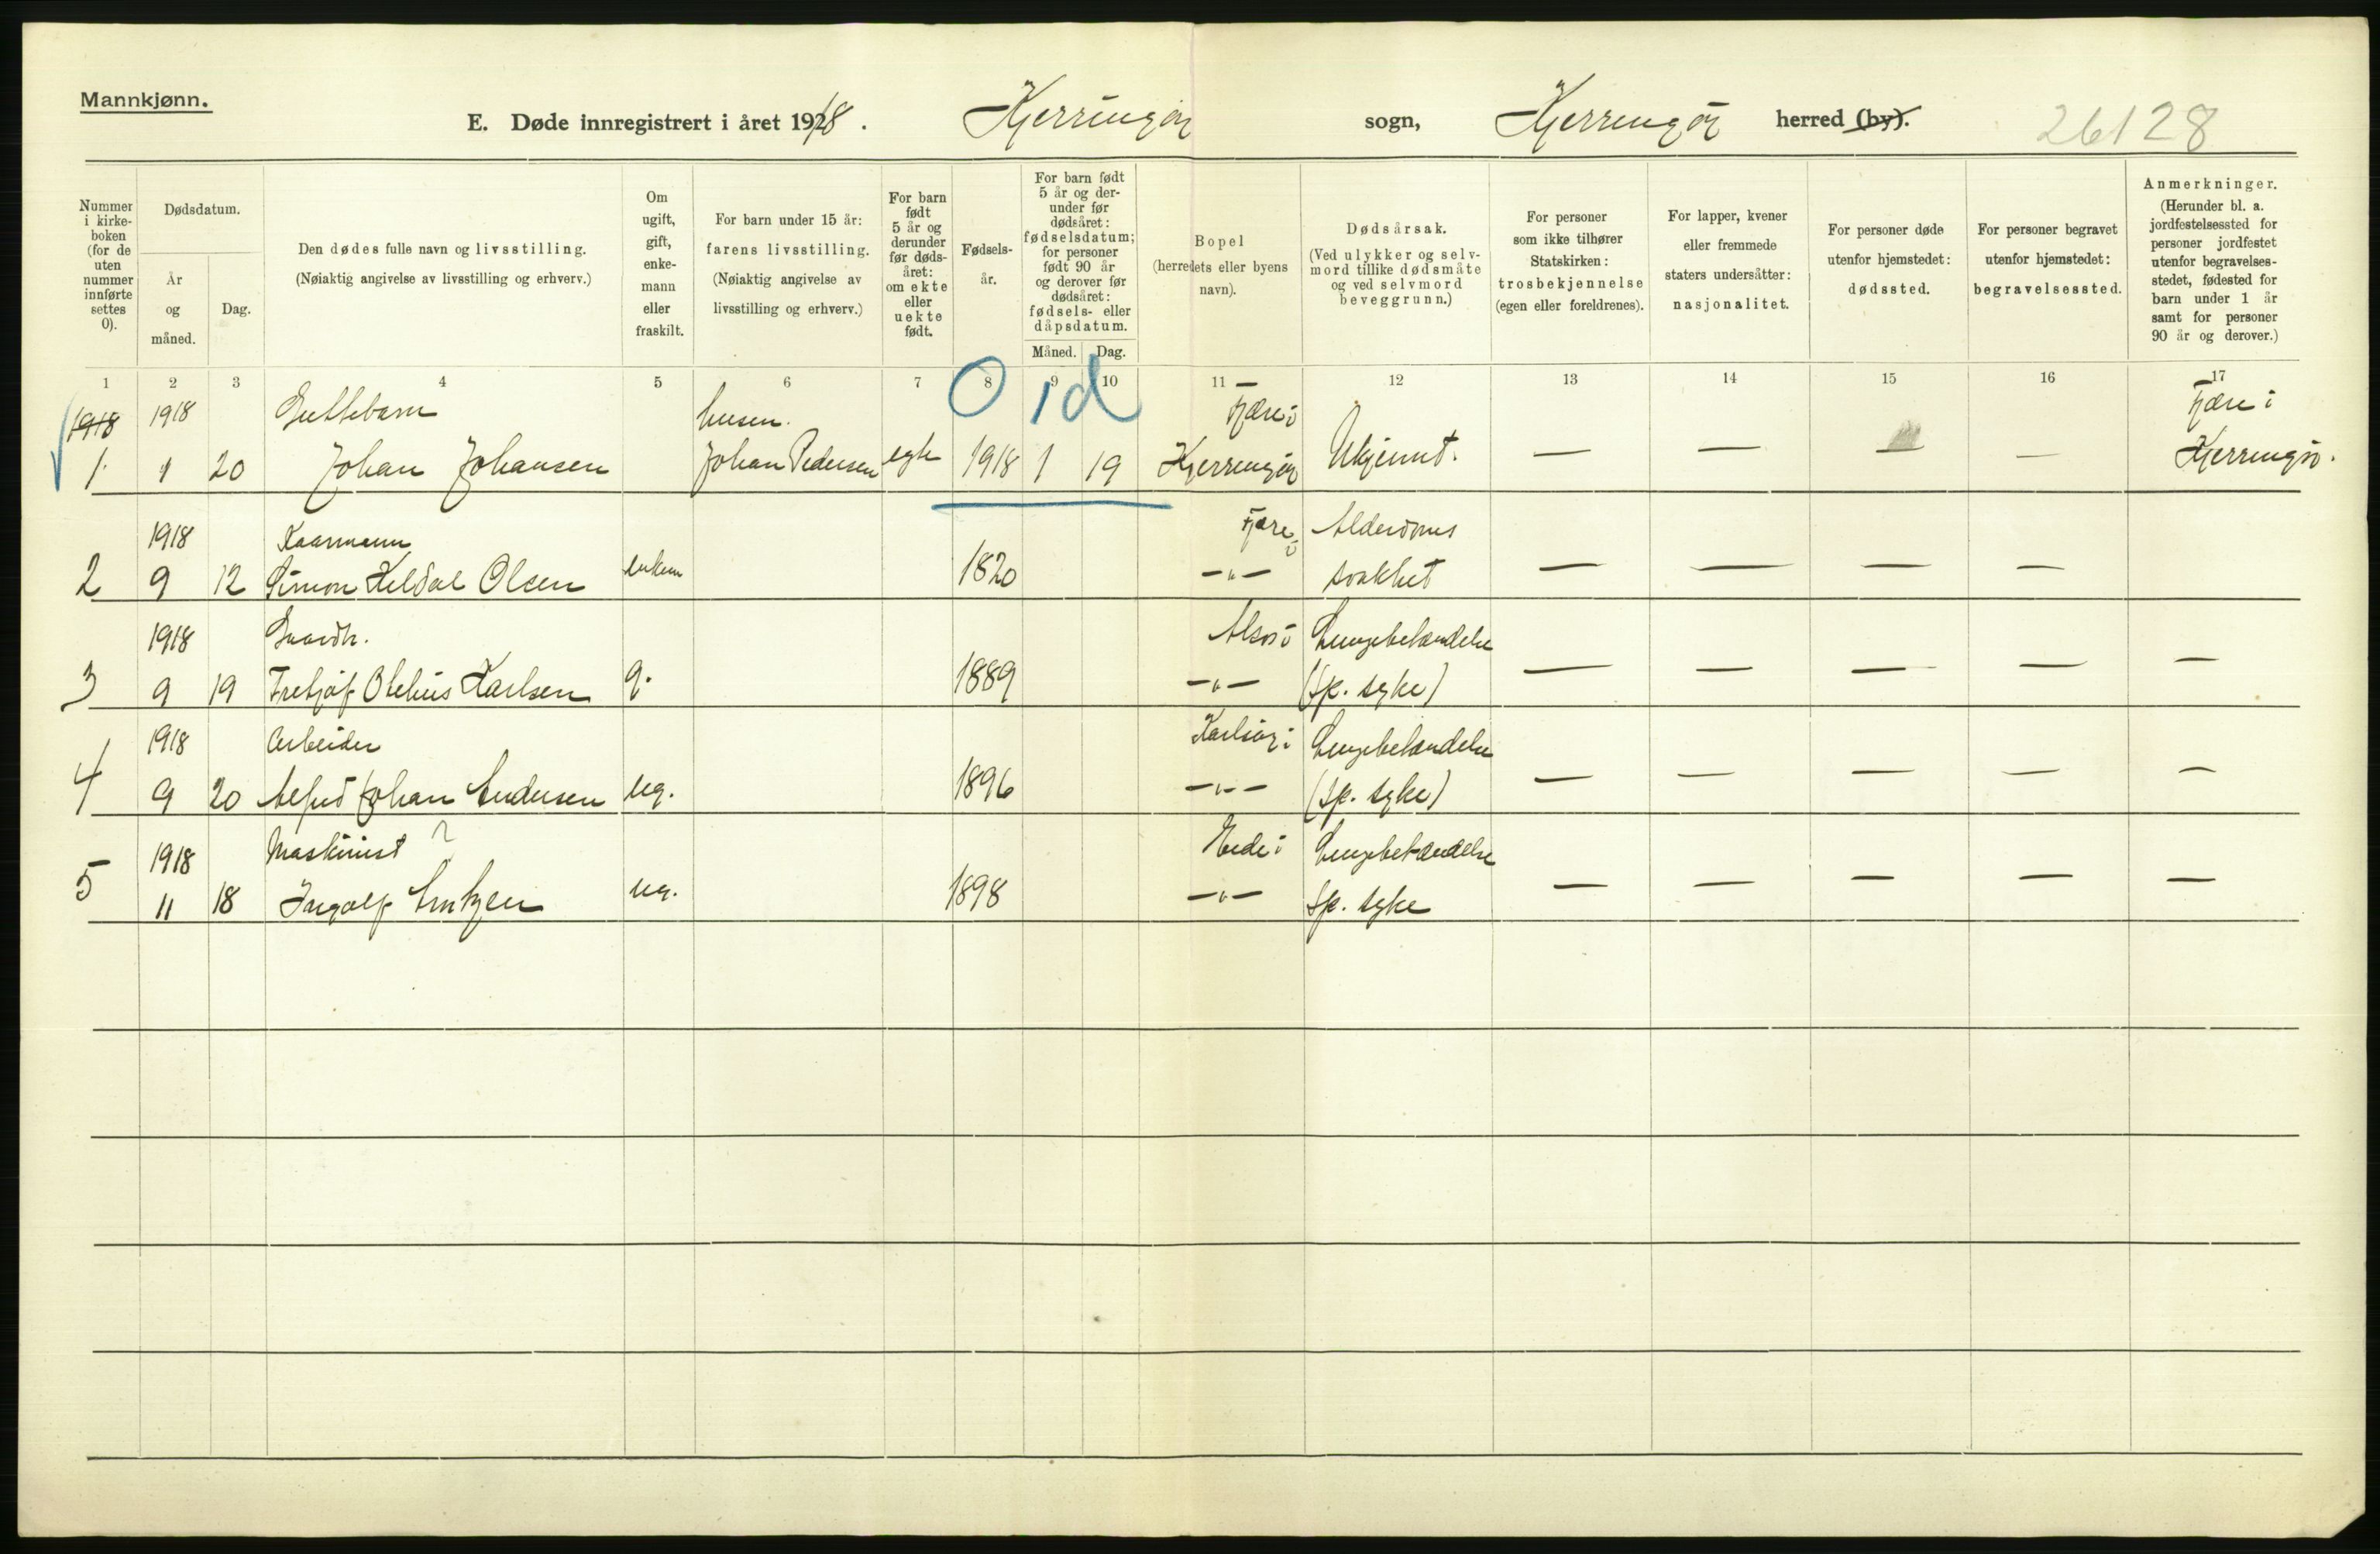 Mannkjønn.
E. Døde innregistrert i året 1918. Kjerringøy sogn, Kjerringøy herred (by). 26128
Nummer i kirkeboken (for de uten nummer innførte settes 0).
Dødsdatum.
År og måned.
Dag.
Den dødes fulle navn og livsstilling.
(Nøiaktig angivelse av livsstilling og erhverv.)
Om ugift, gift, enkemann eller fraskilt.
For barn under 15 år:
farens livsstilling.
(Nøiaktig angivelse av livsstilling og erhverv.)
For barn født 5 år og derunder før dødsåret: om ekte eller uekte født.
Fødselsår.
For barn født 5 år og derunder før dødsåret: fødselsdatum; for personer født 90 år og derover før dødsåret: fødsels- eller dåpsdatum.
Måned. Dag.
Bopel
(herredets eller byens navn).
Dødsårsak.
(Ved ulykker og selvmord tillike dødsmåte og ved selvmord beveggrunn.)
For personer som ikke tilhører Statskirken: trosbekjennelse (egen eller foreldrenes).
For lapper, kvener eller fremmede staters undersåtter: nasjonalitet.
For personer døde utenfor hjemstedet: dødssted.
For personer begravet utenfor hjemstedet: begravelsessted.
Anmerkninger.
(Herunder bl. a. jordfestelsessted for personer jordfestet utenfor begravelsesstedet, fødested for barn under 1 år samt for personer 90 år og derover.)
1 2 3 4 5 6 7 8 9 10 11 12 13 14 15 16 17
0 1d
1918 1918 Guttebarn husm. Fjære i Fjære i
1. 1 20 Johan Johansen Johan Pedersen egte 1918 1 19 Kjerringøy Ukjennt. — — — — Kjerringøy.
1918 Kaarmann Fjære i Alderdoms
2 9 12 Simon Heldal Olsen enkem 1820 —"— svakhet — — — —
1918 Gaardbr. Alsos i Lungebetændelse
3 9 19 Olelius Karlsen g. 1889 —"— (sp. syke) — — — — —
1918 Arbeider Karlsøy i Lungebetændelse
4 9 20 Alfred Johan Andersen ug. 1896 —"— (sp. syke) — — — — —
1918 Maskinist ? Lungebetændelse
5 11 18 Ingolf Entzen ug. 1898 —"— sp. syke — — — — —